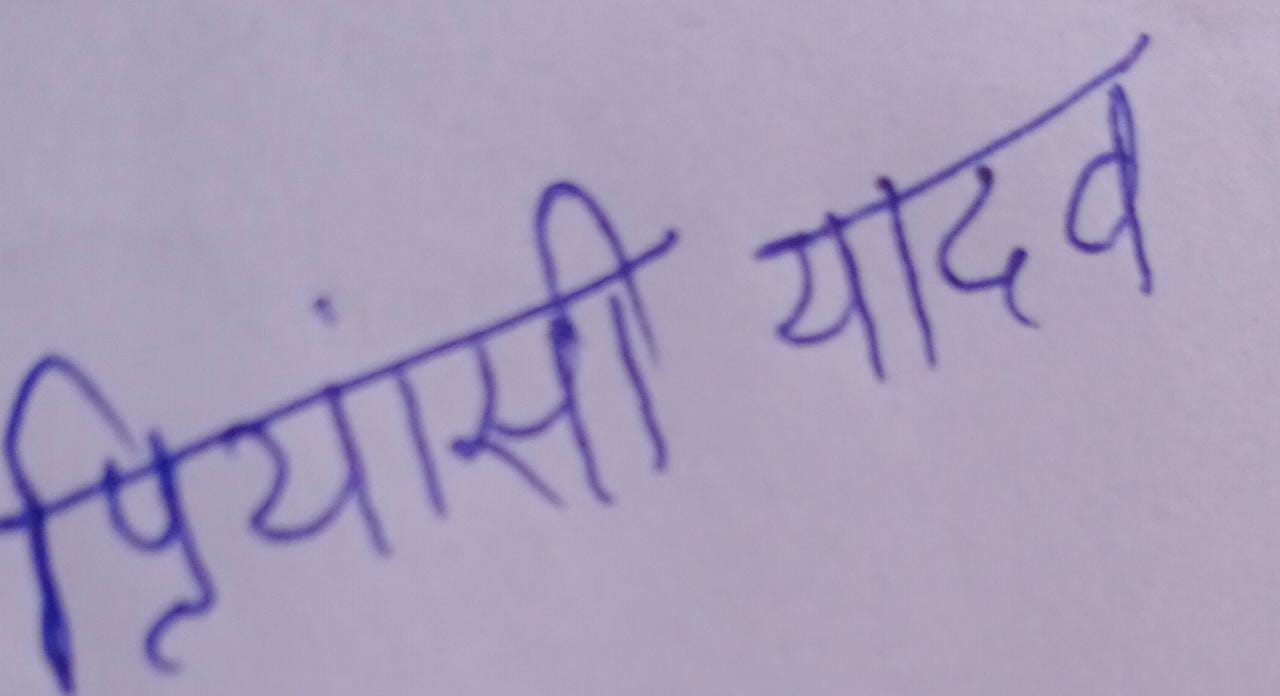 पृियांसी यादव